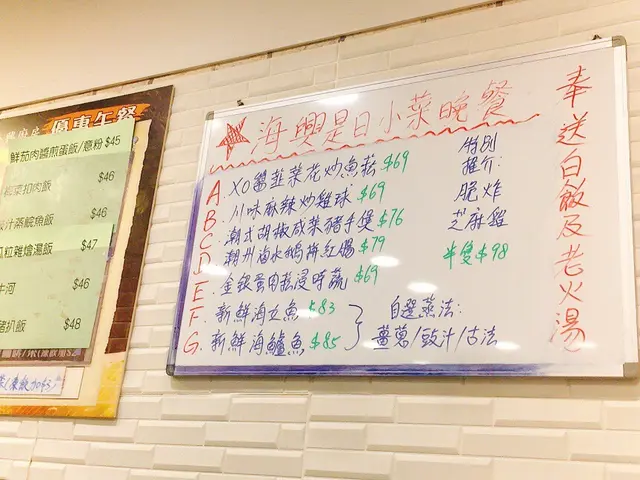 優惠午餐
鮮茄肉醬煎蛋飯/意粉 $45
菜扣肉飯 $46
汁蒸鯇魚飯 $46
粒雜燴湯飯 $47
牛河 $46
豬扒飯 $48
海興是日小菜晚餐
A. XO醬韮菜花炒魚菘 $69
B. 川味麻辣炒雞球 $69
C. 潮式胡椒咸菜豬手煲 $76
D. 潮州鹵水鵝拼紅腸 $79
E. 金銀蛋肉菘浸時蔬 $69
F. 新鮮海立魚 $83
G. 新鮮海鱸魚 $85
自選蒸法:
薑蔥/豉汁/古法
特別
推介:
脆炸
芝麻雞
半隻 $98
奉送白飯及老火湯